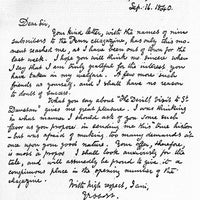 Sep. 16. 1840.
Dear Sir,
Your kind letter, with the names of nine
subscribers to the Penn Magazine, has only this mo-
ment reached me, as I have been out of town for the
last week. I hope you will think me sincere when
I say that I am truly grateful for the interest you
have taken in my welfare. A few more such
friends as yourself, and I shall have no reason
to doubt of success.
What you say about "the Devil's Visit to St.
Dunstan" gives me great pleasure. I was thinking
in what manner I should ask of you some such
favor as you propose,
but was afraid of making too many demands at
once upon your good nature. Your offer, therefore,
is most à propos. I shall look anxiously for the
tale, and will assuredly be proud to give it a
conspicuous place in the opening number of the
Magazine.
With high respect, I am,